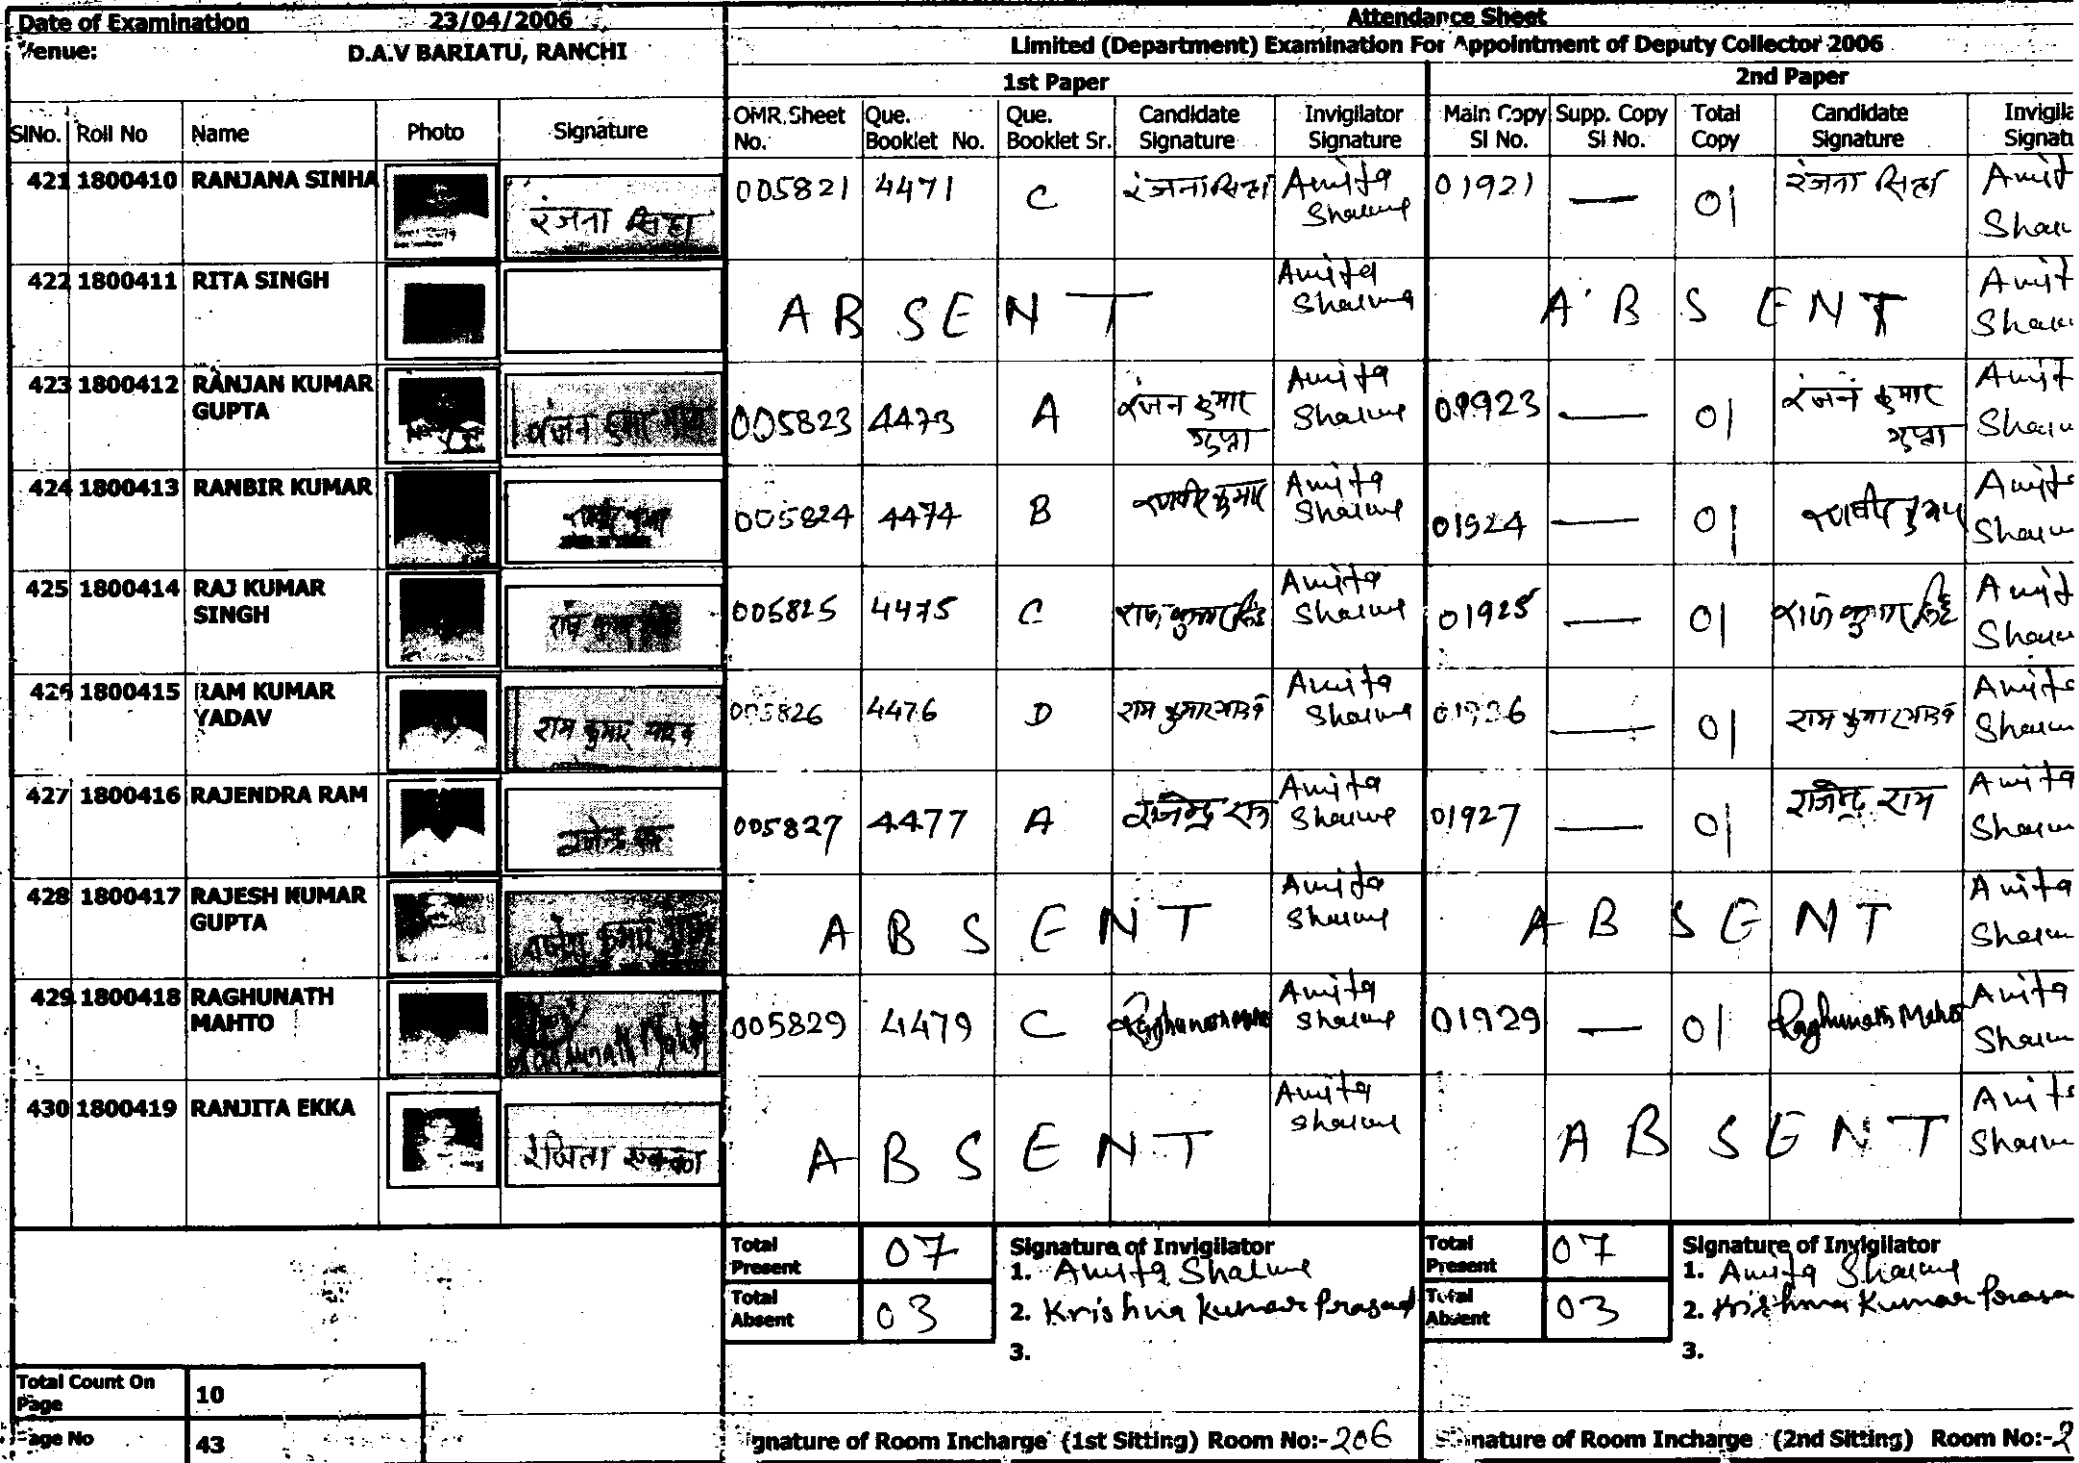 Date of Examination 23/04/2006 Attendance Sheet
Venue: D.A.V BARIATU, RANCHI Limited (Department) Examination For Appointment of Deputy Collector 2006
1st Paper 2nd Paper
SlNo. Roll No Name Photo Signature OMR Sheet No. Que. Booklet No. Que. Booklet Sr. Candidate Signature Invigilator Signature Main Copy Sl No. Supp. Copy Sl No. Total Copy Candidate Signature
421 1800410 RANJANA SINHA रंजना सिन्हा 005821 4471 C रंजना सिन्हा Amita Sharma 01921 — 01 रंजना सिन्हा
422 1800411 RITA SINGH ABSENT Amita Sharma ABSENT
423 1800412 RANJAN KUMAR GUPTA रंजन कुमार 005823 4473 A रंजन कुमार गुप्ता Amita Sharma 01923 — 01 रंजन कुमार गुप्ता
424 1800413 RANBIR KUMAR 005824 4474 B रणवीर कुमार Amita Sharma 01924 — 01 रणवीर कुमार
425 1800414 RAJ KUMAR SINGH 005825 4475 C राज कुमार सिंह Amita Sharma 01925 — 01 राज कुमार सिंह
426 1800415 RAM KUMAR YADAV राम कुमार यादव 005826 4476 D राम कुमार यादव Amita Sharma — 01 राम कुमार यादव
427 1800416 RAJENDRA RAM 005827 4477 A राजेन्द्र राम Amita Sharma 01927 — 01 राजेन्द्र राम Amita
428 1800417 RAJESH KUMAR GUPTA ABSENT Amita Sharma ABSENT Amita
429 1800418 RAGHUNATH MAHTO 005829 4479 C Raghunath Mahto Amita Sharma 01929 — 01 Raghunath Mahto Amita
430 1800419 RANJITA EKKA रंजिता एक्का ABSENT Amita Sharma ABSENT
Total Present 07 Signature of Invigilator Total Present 07 Signature of Invigilator
1. Amita Sharma 1. Amita Sharma
Total Absent 03 2. Krishna Kumar Prasad Total Absent 03 2. Krishna Kumar
3. 3.
Total Count On Page 10
Page No 43 Signature of Room Incharge (1st Sitting) Room No:-206 Signature of Room Incharge (2nd Sitting) Room No:-2